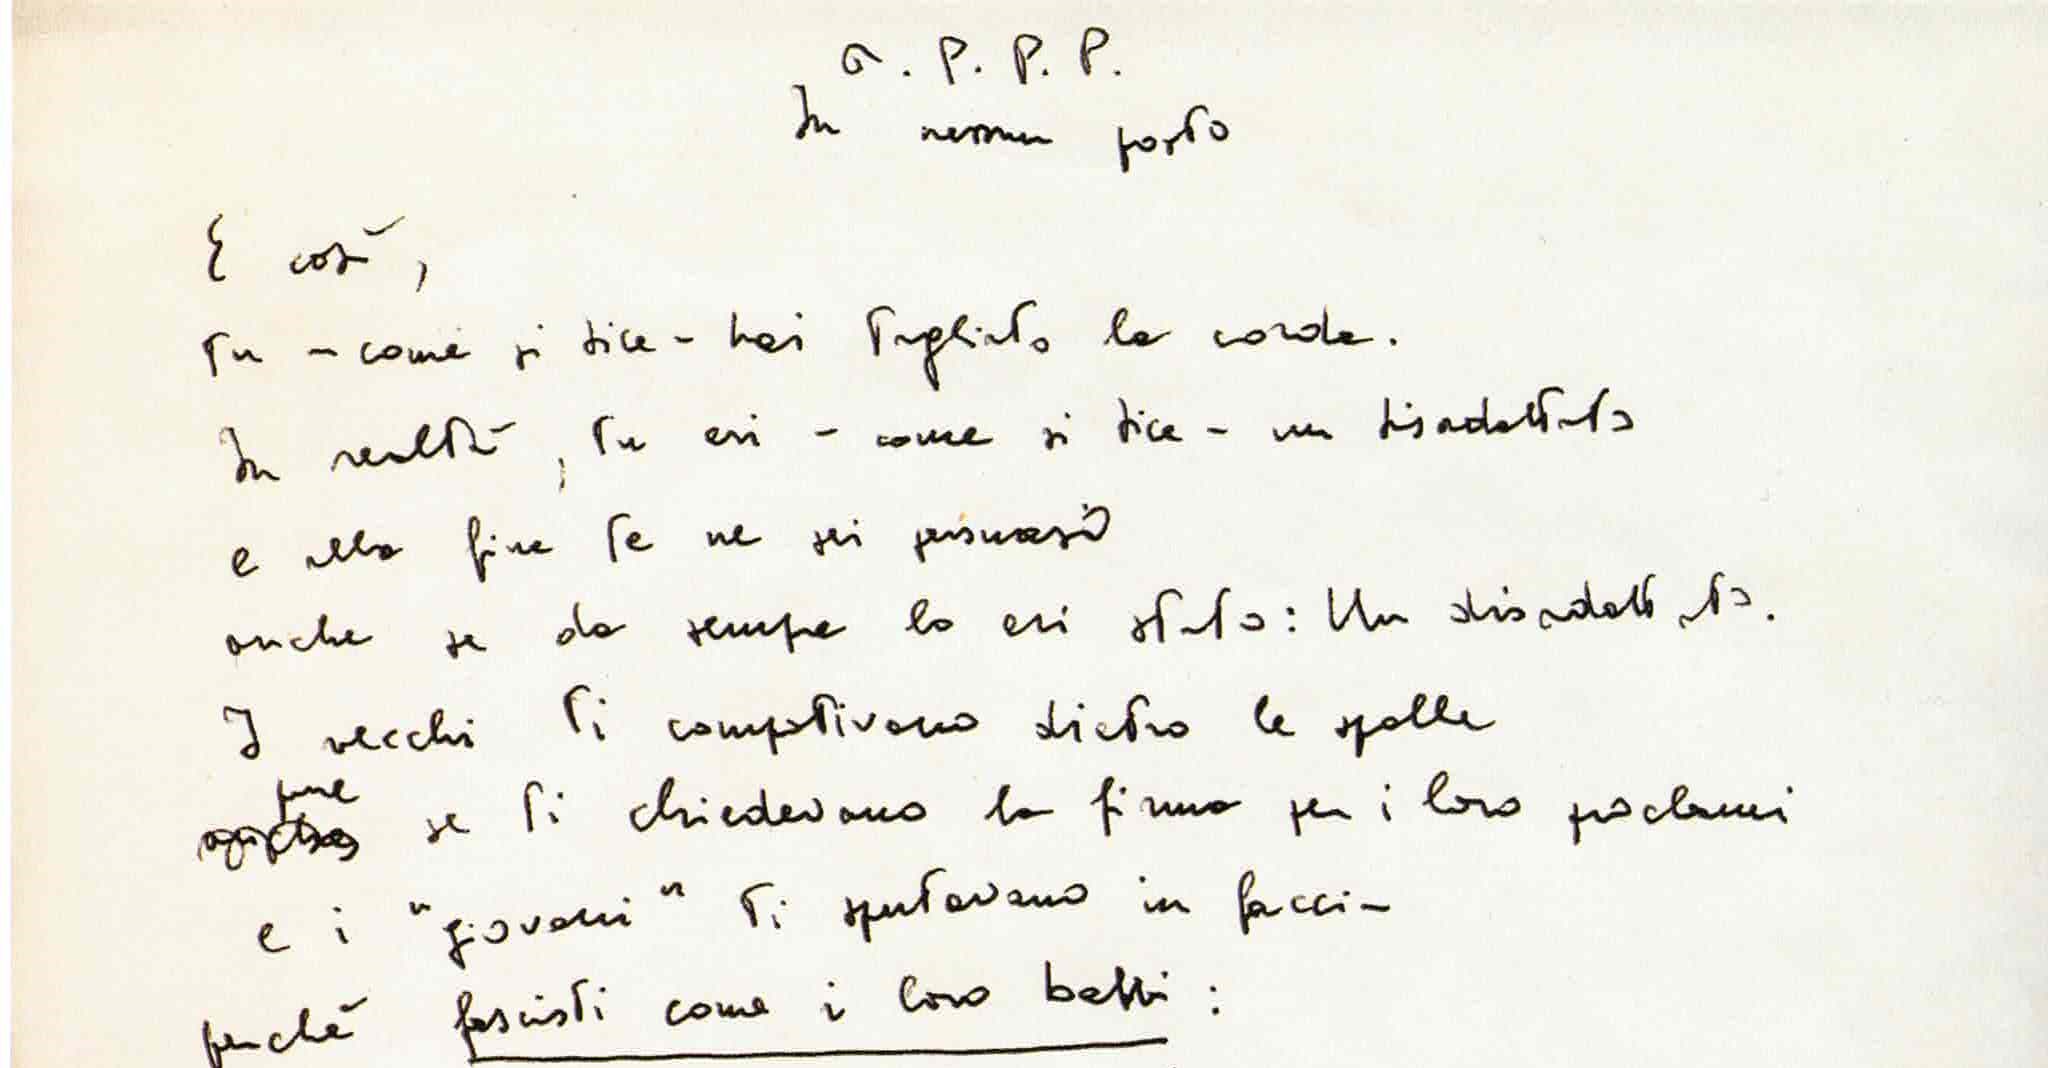 a. P. P. P.
In nessun posto
E così,
tu - come si dice - hai tagliato la corda.
In realtà, tu eri - come si dice - un disadattato
e alla fine te ne sei persuaso
anche se da sempre lo eri stato: Un disadattato.
I vecchi ti compativano dietro le spalle
pure
se ti chiedevano la firma per i loro proclami
e i "giovani" ti sputavano in faccia
perchè fascisti come i loro baffi: